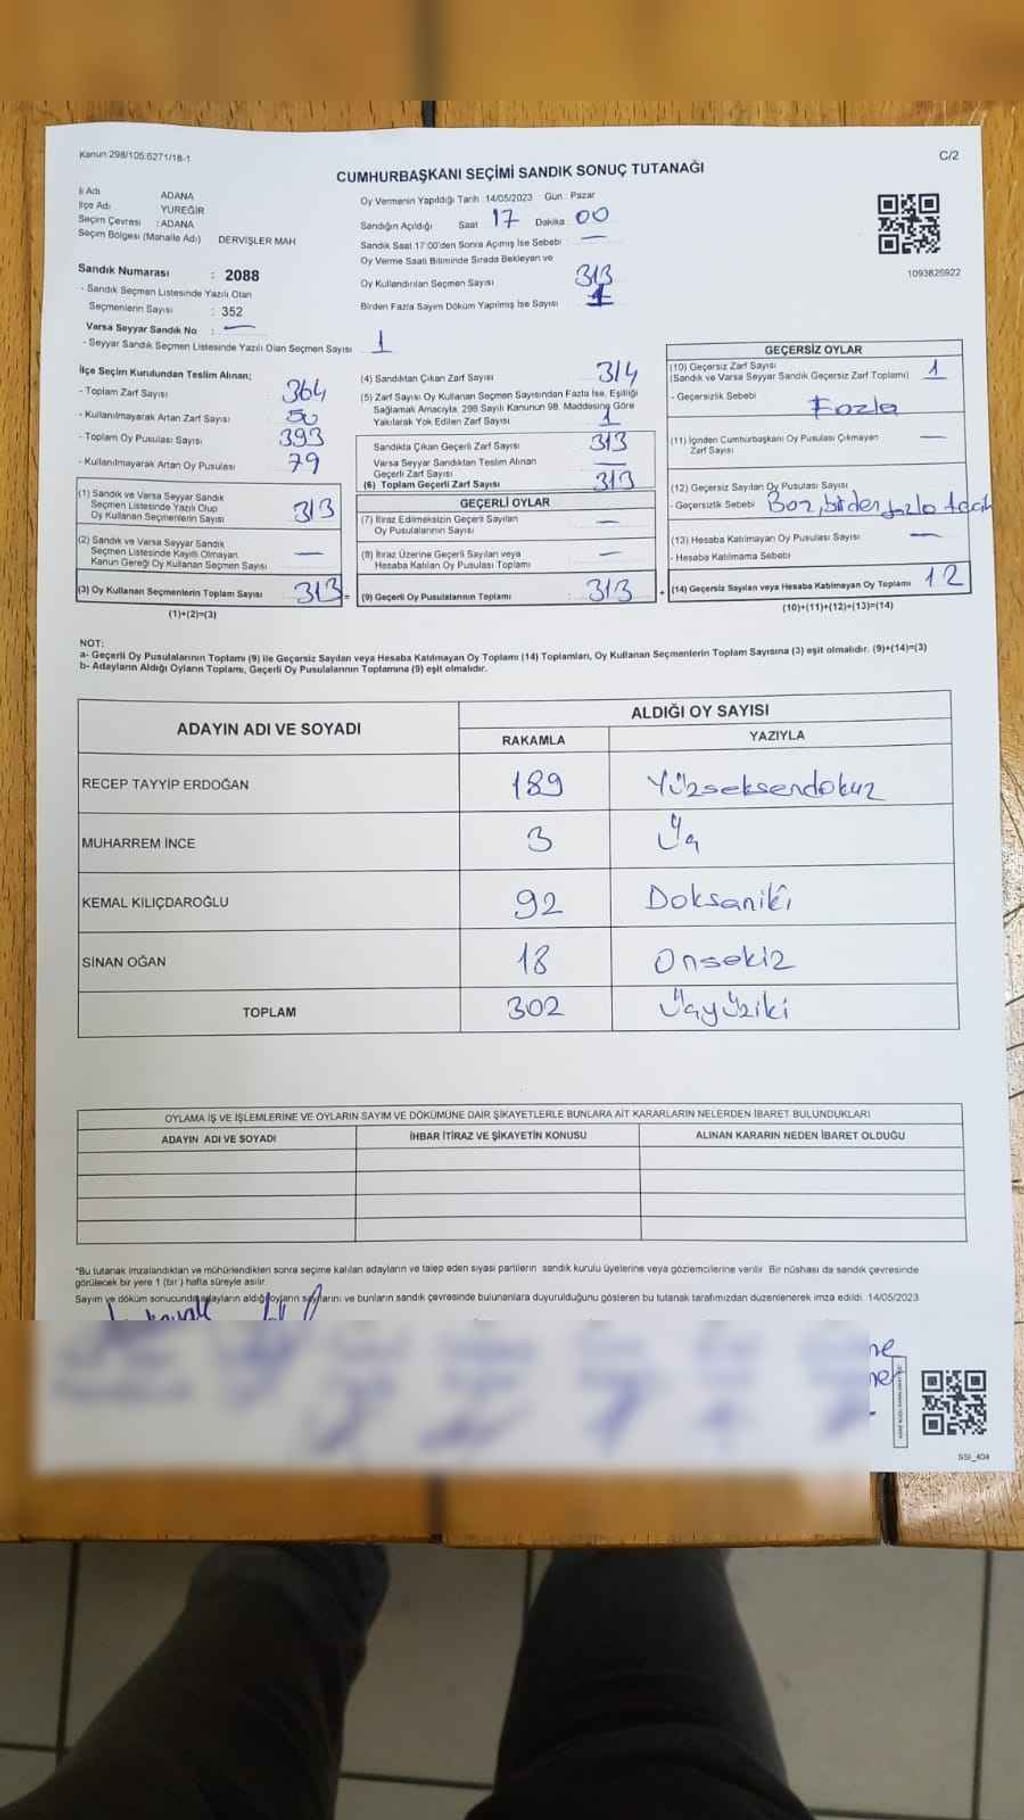 Kanun:298/105.6271/18-1
C/2
CUMHURBAŞKANI SEÇİMİ SANDIK SONUÇ TUTANAĞI
İl Adı ADANA
İlçe Adı YÜREĞİR
Seçim Çevresi : ADANA
Seçim Bölgesi (Mahalle Adı) DERVİŞLER MAH
Sandık Numarası : 2088
- Sandık Seçmen Listesinde Yazılı Olan
Seçmenlerin Sayısı : 352
Varsa Seyyar Sandık No : —
- Seyyar Sandık Seçmen Listesinde Yazılı Olan Seçmen Sayısı 1
Oy Vermenin Yapıldığı Tarih :14/05/2023 Gün : Pazar
Sandığın Açıldığı Saat 17 Dakika 00
Sandık Saat 17:00'den Sonra Açılmış İse Sebebi —
Oy Verme Saati Bitiminde Sırada Bekleyen ve
Oy Kullandırılan Seçmen Sayısı 313
Birden Fazla Sayım Döküm Yapılmış İse Sayısı 1
1093826922
İlçe Seçim Kurulundan Teslim Alınan;
- Toplam Zarf Sayısı 364
- Kullanılmayarak Artan Zarf Sayısı 50
- Toplam Oy Pusulası Sayısı 393
- Kullanılmayarak Artan Oy Pusulası 79
(1) Sandık ve Varsa Seyyar Sandık
Seçmen Listesinde Yazılı Olup
Oy Kullanan Seçmenlerin Sayısı 313
(2) Sandık ve Varsa Seyyar Sandık
Seçmen Listesinde Kayıtlı Olmayan
Kanun Gereği Oy Kullanan Seçmen Sayısı —
(3) Oy Kullanan Seçmenlerin Toplam Sayısı 313 =
(1)+(2)=(3)
(4) Sandıktan Çıkan Zarf Sayısı 314
(5) Zarf Sayısı Oy Kullanan Seçmen Sayısından Fazla İse, Eşitliği
Sağlamak Amacıyla, 298 Sayılı Kanunun 98. Maddesine Göre
Yakılarak Yok Edilen Zarf Sayısı 1
Sandıkta Çıkan Geçerli Zarf Sayısı 313
Varsa Seyyar Sandıktan Teslim Alınan
Geçerli Zarf Sayısı —
(6) Toplam Geçerli Zarf Sayısı 313
GEÇERLİ OYLAR
(7) İtiraz Edilmeksizin Geçerli Sayılan
Oy Pusulalarının Sayısı —
(8) İtiraz Üzerine Geçerli Sayılan veya
Hesaba Katılan Oy Pusulası Toplamı —
(9) Geçerli Oy Pusulalarının Toplamı : 313 +
GEÇERSİZ OYLAR
(10) Geçersiz Zarf Sayısı
(Sandık ve Varsa Seyyar Sandık Geçersiz Zarf Toplamı) 1
- Geçersizlik Sebebi Fazla
(11) İçinden Cumhurbaşkanı Oy Pusulası Çıkmayan
Zarf Sayısı —
(12) Geçersiz Sayılan Oy Pusulası Sayısı
- Geçersizlik Sebebi
(13) Hesaba Katılmayan Oy Pusulası Sayısı —
- Hesaba Katılmama Sebebi
(14) Geçersiz Sayılan veya Hesaba Katılmayan Oy Toplamı 12
(10)+(11)+(12)+(13)=(14)
NOT:
a- Geçerli Oy Pusulalarının Toplamı (9) ile Geçersiz Sayılan veya Hesaba Katılmayan Oy Toplamı (14) Toplamları, Oy Kullanan Seçmenlerin Toplam Sayısına (3) eşit olmalıdır. (9)+(14)=(3)
b- Adayların Aldığı Oyların Toplamı, Geçerli Oy Pusulalarının Toplamına (9) eşit olmalıdır.
ADAYIN ADI VE SOYADI
ALDIĞI OY SAYISI
RAKAMLA YAZIYLA
RECEP TAYYİP ERDOĞAN 189 Yüzseksendokuz
MUHARREM İNCE 3 Üç
KEMAL KILIÇDAROĞLU 92 Doksaniki
SİNAN OĞAN 18 Onsekiz
TOPLAM 302 Üçyüziki
OYLAMA İŞ VE İŞLEMLERİNE VE OYLARIN SAYIM VE DÖKÜMÜNE DAİR ŞİKAYETLERLE BUNLARA AİT KARARLARIN NELERDEN İBARET BULUNDUKLARI
ADAYIN ADI VE SOYADI İHBAR İTİRAZ VE ŞİKAYETİN KONUSU ALINAN KARARIN NEDEN İBARET OLDUĞU
*Bu tutanak imzalandıktan ve mühürlendikten sonra seçime katılan adayların ve talep eden siyasi partilerin sandık kurulu üyelerine veya gözlemcilerine verilir. Bir nüshası da sandık çevresinde
görülecek bir yere 1 (bir) hafta süreyle asılır.
Sayım ve döküm sonucunda adayların aldığı oyların sayılarını ve bunların sandık çevresinde bulunanlara duyurulduğunu gösteren bu tutanak tarafımızdan düzenlenerek imza edildi. 14/05/2023